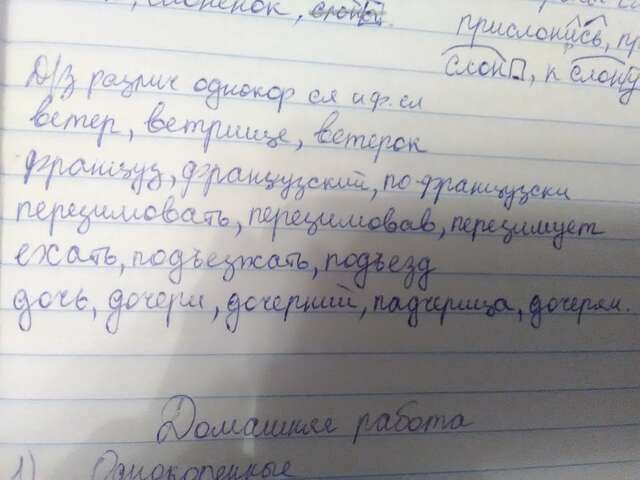 прислонись, пр
слон, к слону
Д/З различ однокор сл и ф. сл
ветер, ветрище, ветерок
француз, французский, по-французски
перезимовать, перезимовав, перезимует
ехать, подъезжать, подъезд
дочь, дочери, дочерний, падчерица, дочерям.
Домашняя работа
1) Однокоренные